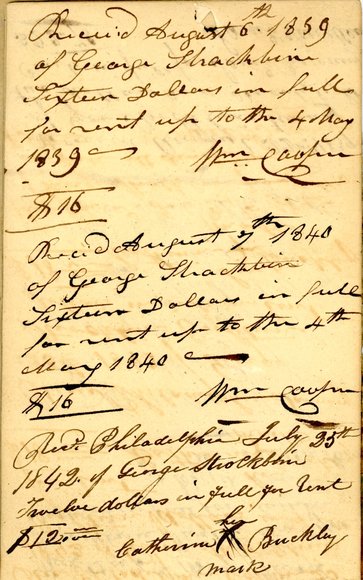 Receiv'd August 6th 1839
of George Strackbine
Sixteen Dollars in full
for rent up to the 4 May
1839
Wm Cooper
$16
Rec'd August 7th 1840
of George Strackbin
Sixteen Dollars in full
for rent up to the 4th
May 1840
Wm Cooper
$16
Recd. Philadelphia July 25th
1842. of George Strockbin
Twelve dollars in full for Rent
$12
her
Catherine X Buckley
mark